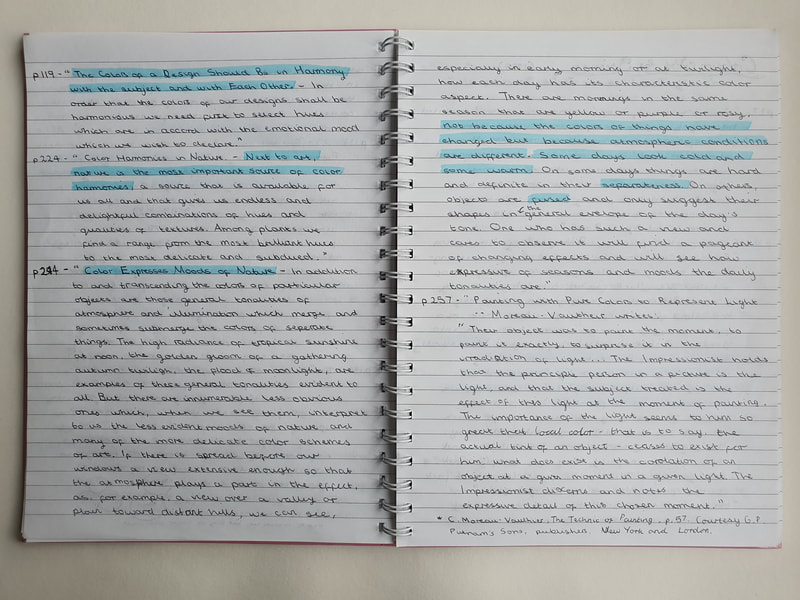 p119 - "The Colors of a Design Should Be in Harmony
with the subject and with Each Other - In
order that the colors of our designs shall be
harmonious we need first to select hues
which are in accord with the emotional mood
which we wish to declare."
p.224 - "Color Harmonies in Nature - Next to art,
nature is the most important source of color
harmonies, a source that is available for
us all and that gives us endless and
delightful combinations of hues and
qualities of textures. Among plants we
find a range from the most brilliant hues
to the most delicate and subdued."
p244 - "Color Expresses Moods of Nature - In addition
to and transcending the colors of particular
objects are those general tonalities of
atmosphere and illumination which merge, and
sometimes submerge the colors of seperate
things. The high radiance of tropical sunshine
at noon, the golden gloom of a gathering
autumn twilight, the flood of moonlight, are
examples of these general tonalities evident to
all. But there are innumerable less obvious
ones which, when we see them, interpret
to us the less evident moods of nature and
many of the more delicate color schemes
of art. If there is spread before our
windows a view extensive enough so that
the atmosphere plays a part in the effect,
as, for example, a view over a valley or
plain toward distant hills, we can see,
especially in early morning or at twilight,
how each day has its characteristic color
aspect. There are mornings in the same
season that are yellow or purple or rosy,
not because the colors of things have
changed but because atmospheric conditions
are different. Some days look cold and
some warm. On some days things are hard
and definite in their separateness. On others,
objects are fused and only suggest their
shapes in the general envelope of the day's
tone. One who has such a view and
cares to observe it will find a pageant
of changing effects and will see how
expressive of seasons and moods the daily
tonalities are."
p257 - "Painting with Pure Colors to Represent Light
- Moreau-Vauthier writes:
"Their object was to paint the moment, to
paint is exactly, to surprise it in the
irradiation of light... The Impressionist holds
that the principle person in a picture is the
light, and that the subject treated is the
effect of this light at the moment of painting.
The importance of the light seems to him so
great that local color - that is to say, the
actual tint of an object - ceases to exist for
him; what does exist is the coloration of an
object at a given moment in a given light. The
Impressionist discerns and notes the
expressive detail of this chosen moment."
* C. Moreau-Vauthier, The Technic of Painting, p.57. Courtesy G.P
Putnam's Sons, publishers, New York and London.